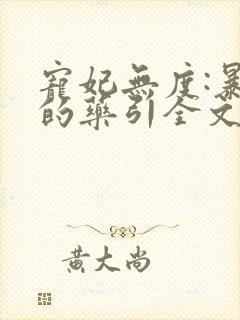 寵妃無度:暴
的藥引全文
黃大尚